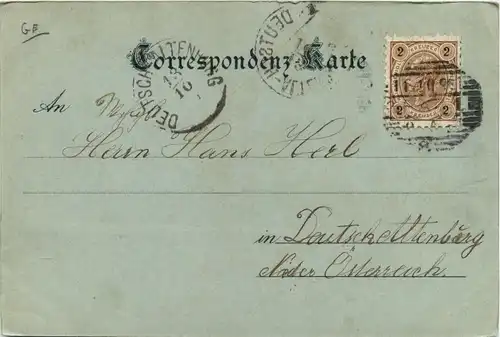 GF
Correspondenz-Karte
DEUTSCH ALTENBURG
18
10
2 2
2 2
An
Herrn Hans Herl
in Deutschaltenburg
Nieder Österreich.